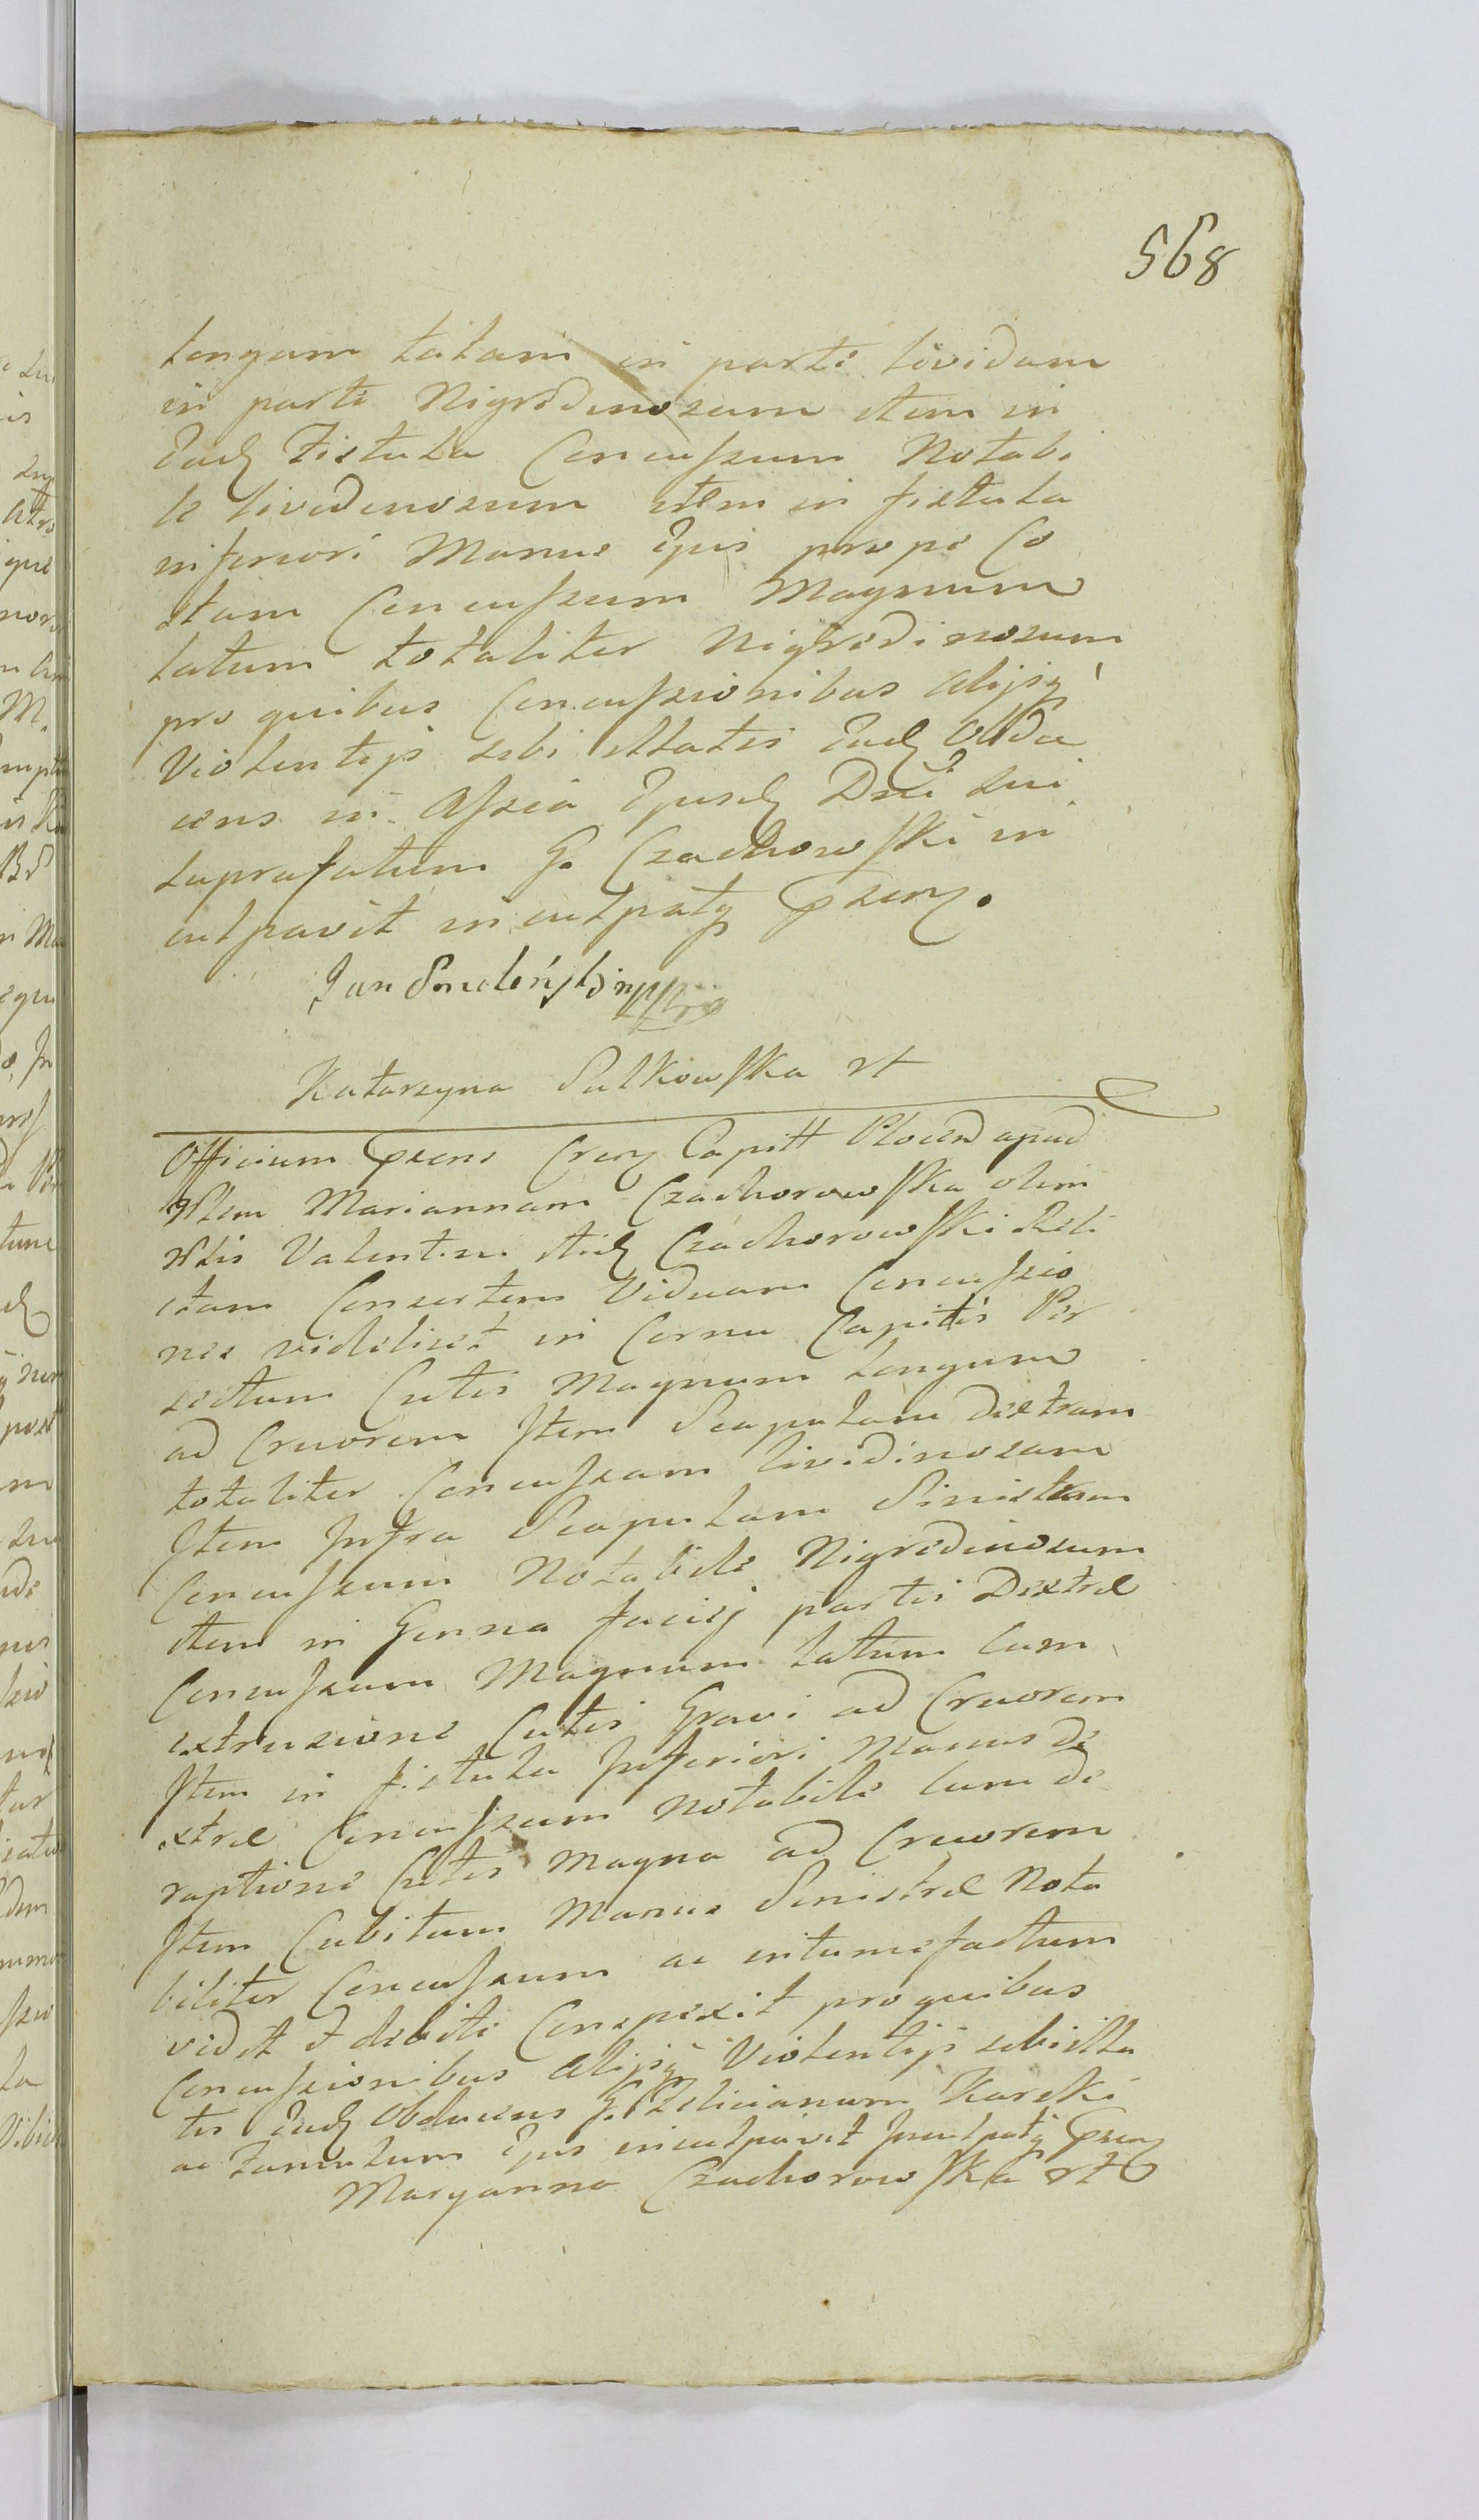 568
longam latam in parte lividam
in parte Nigredinosum item in
Ead Fistula Concussum Notabi
le livedinosum item in fistula
inferiori Manus Ejus prope Co
stam Concussum Magnum
latum totaliter Nigredinosum
pro quibus Concussionibus alijsq
Violentijs sibi illatis Ead Obdu
cens in Assia Ejusd Dni sui
suprafatum G. Czachowski in
culpavit inculpatq Psens.
Jan Smoleński mppria
Katarzyna Sulkowska rt
Officium Psens Cren Capitt Plocen apud
Nblem Mariannam Czachorowska olim
Nblis Valentini itid Czachorowski Reli
ctam Consortem Viduam Concussio
nes videlicet in Cornu Capitis Per
sectum Cutis Magnum longum
ad Cruorem Item Scapulam dextram
totaliter Concussam lividinosam
Item Infra Scapulam Sinistram
Concussum Notabile Nigredinosum
item in Genna faciej partis Dextræ
Concussum Magnum latum Cum
extrusione Cutis Gravi ad Cruorem
Item in fistula Inferiori Manus de
xtræ Concussum notabile Cum de
ruptione Cutis Magna ad Cruorem
Item Cubitum Manus Sinistræ Nota
biliter Concussum ac intumefactum
vidit et debite Conspexit pro quibus
Concussionibus alijsq Violentijs sibi illa
tis Ead Obducens G. Felicianum Karski
ac famulum Ejus inculpavit Inculpatq Psens
Maryanna Czachorowska rt